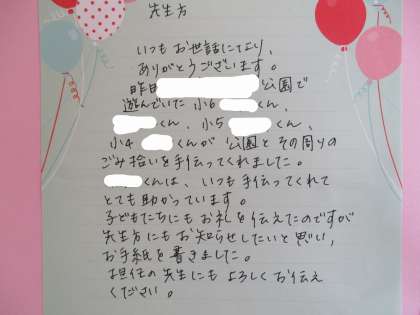 先生方
いつもお世話になり、
ありがとうございます。
昨日 公園で
遊んでいた 小6 くん、
くん、小5 くん、
小4 くんが 公園とその周りの
ごみ拾いを手伝ってくれました。
くんは、いつも手伝ってくれて
とても助かっています。
子どもたちにもお礼を伝えたのですが
先生方にもお知らせしたいと思い、
お手紙を書きました。
担任の先生にもよろしくお伝え
ください。